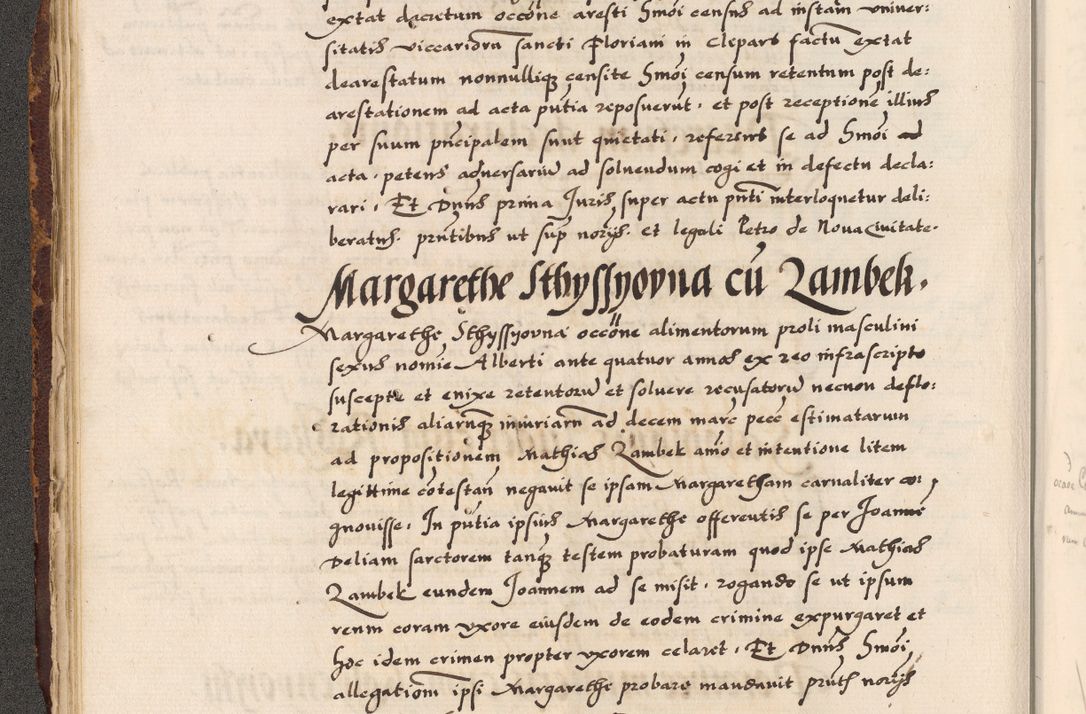 extat decretum occōne aresti Hmōi census ad instam vniver:
sitatis viccariorū sancti Floriani in Cleparz factū extat
dearestatum nonnulliq censite Hmōi censum retentum post de:
arestationem ad acta pn̄tia reposuerūt, et post receptionē illius
per suum pn̄cipalem sunt quietati, referens se ad Hmōi
acta, petens adversariū ad solvendum cogi et in defectu decla:
rari, Et Dn̄us prima Juris super actu pn̄ti interloquetur deli:
beratus. prn̄tibus ut sup norijs. et legali Petro de Nova civitate.
Margarethe Sthyssyovna cū Zambek.
Margarethe Sthyssyovna occōne alimentorum proli masculini
sexus nomīe Alberti ante quatuor annos ex reo infrascripto
suscepte et enixe retentorū et solvere recusatorū necnon deflo:
rationis aliarūq iniuriarū ad decem marc pecc estimatarum
ad propositionem Mathias Zambek amō et intentione litem
legittime cōtestan negavit se ipsam Margaretham carnaliter co,
gnovisse, In pn̄tia ipsius Margarethe offerentis se per Joannē
Deliam sarctorem tanq̄ testem probaturam quod ipse Mathias
Zambek eundem Joannem ad se misit, rogando se ut ipsum
reum coram vxore eiusdem de eodem crimine expurgaret et
hoc idem crimen propter vxorem celaret, Et Dn̄us Hmōi
allegationē ipsi Margarethe probare mandavit prn̄tib norijs